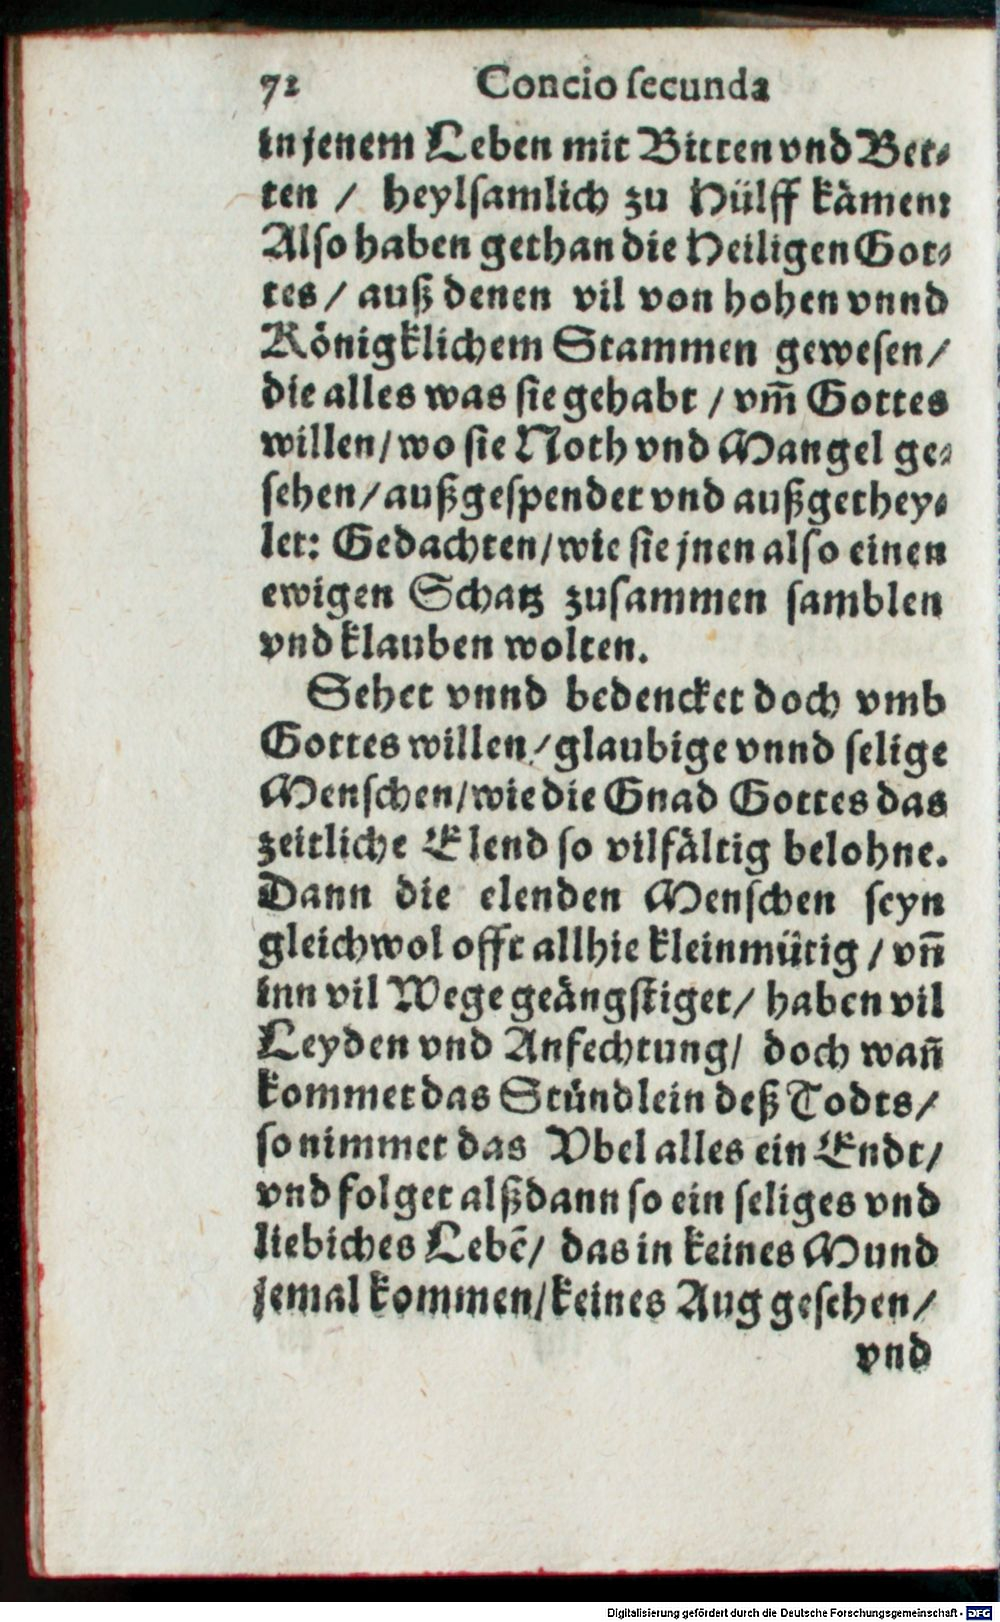 72 Concio secunda
in jenem Leben mit Bitten vnd Bet⸗
ten / heylsamlich zu Hülff kämen:
Also haben gethan die Heiligen Got⸗
tes / auß denen vil von hohen vnnd
Königklichem Stammen gewesen /
die alles was sie gehabt / vm̃ Gottes
willen / wo sie Noth vnd Mangel ge⸗
sehen / außgespendet vnd außgethey⸗
let: Gedachten / wie sie jnen also einen
ewigen Schatz zusammen samblen
vnd klauben wolten.
Sehet vnnd bedencket doch vmb
Gottes willen / glaubige vnnd selige
Menschen / wie die Gnad Gottes das
zeitliche Elend so vilfältig belohne.
Dann die elenden Menschen seyn
gleichwol offt allhie kleinmütig / vñ
inn vil Wege geängstiget / haben vil
Leyden vnd Anfechtung / doch wañ
kommet das Stündlein deß Todts /
so nimmet das Vbel alles ein Endt /
vnd folget alßdann so ein seliges vnd
liebiches Lebẽ / das in keines Mund
jemal kommen / keines Aug gesehen /
vnd
Digitalisierung gefördert durch die Deutsche Forschungsgemeinschaft - DFG